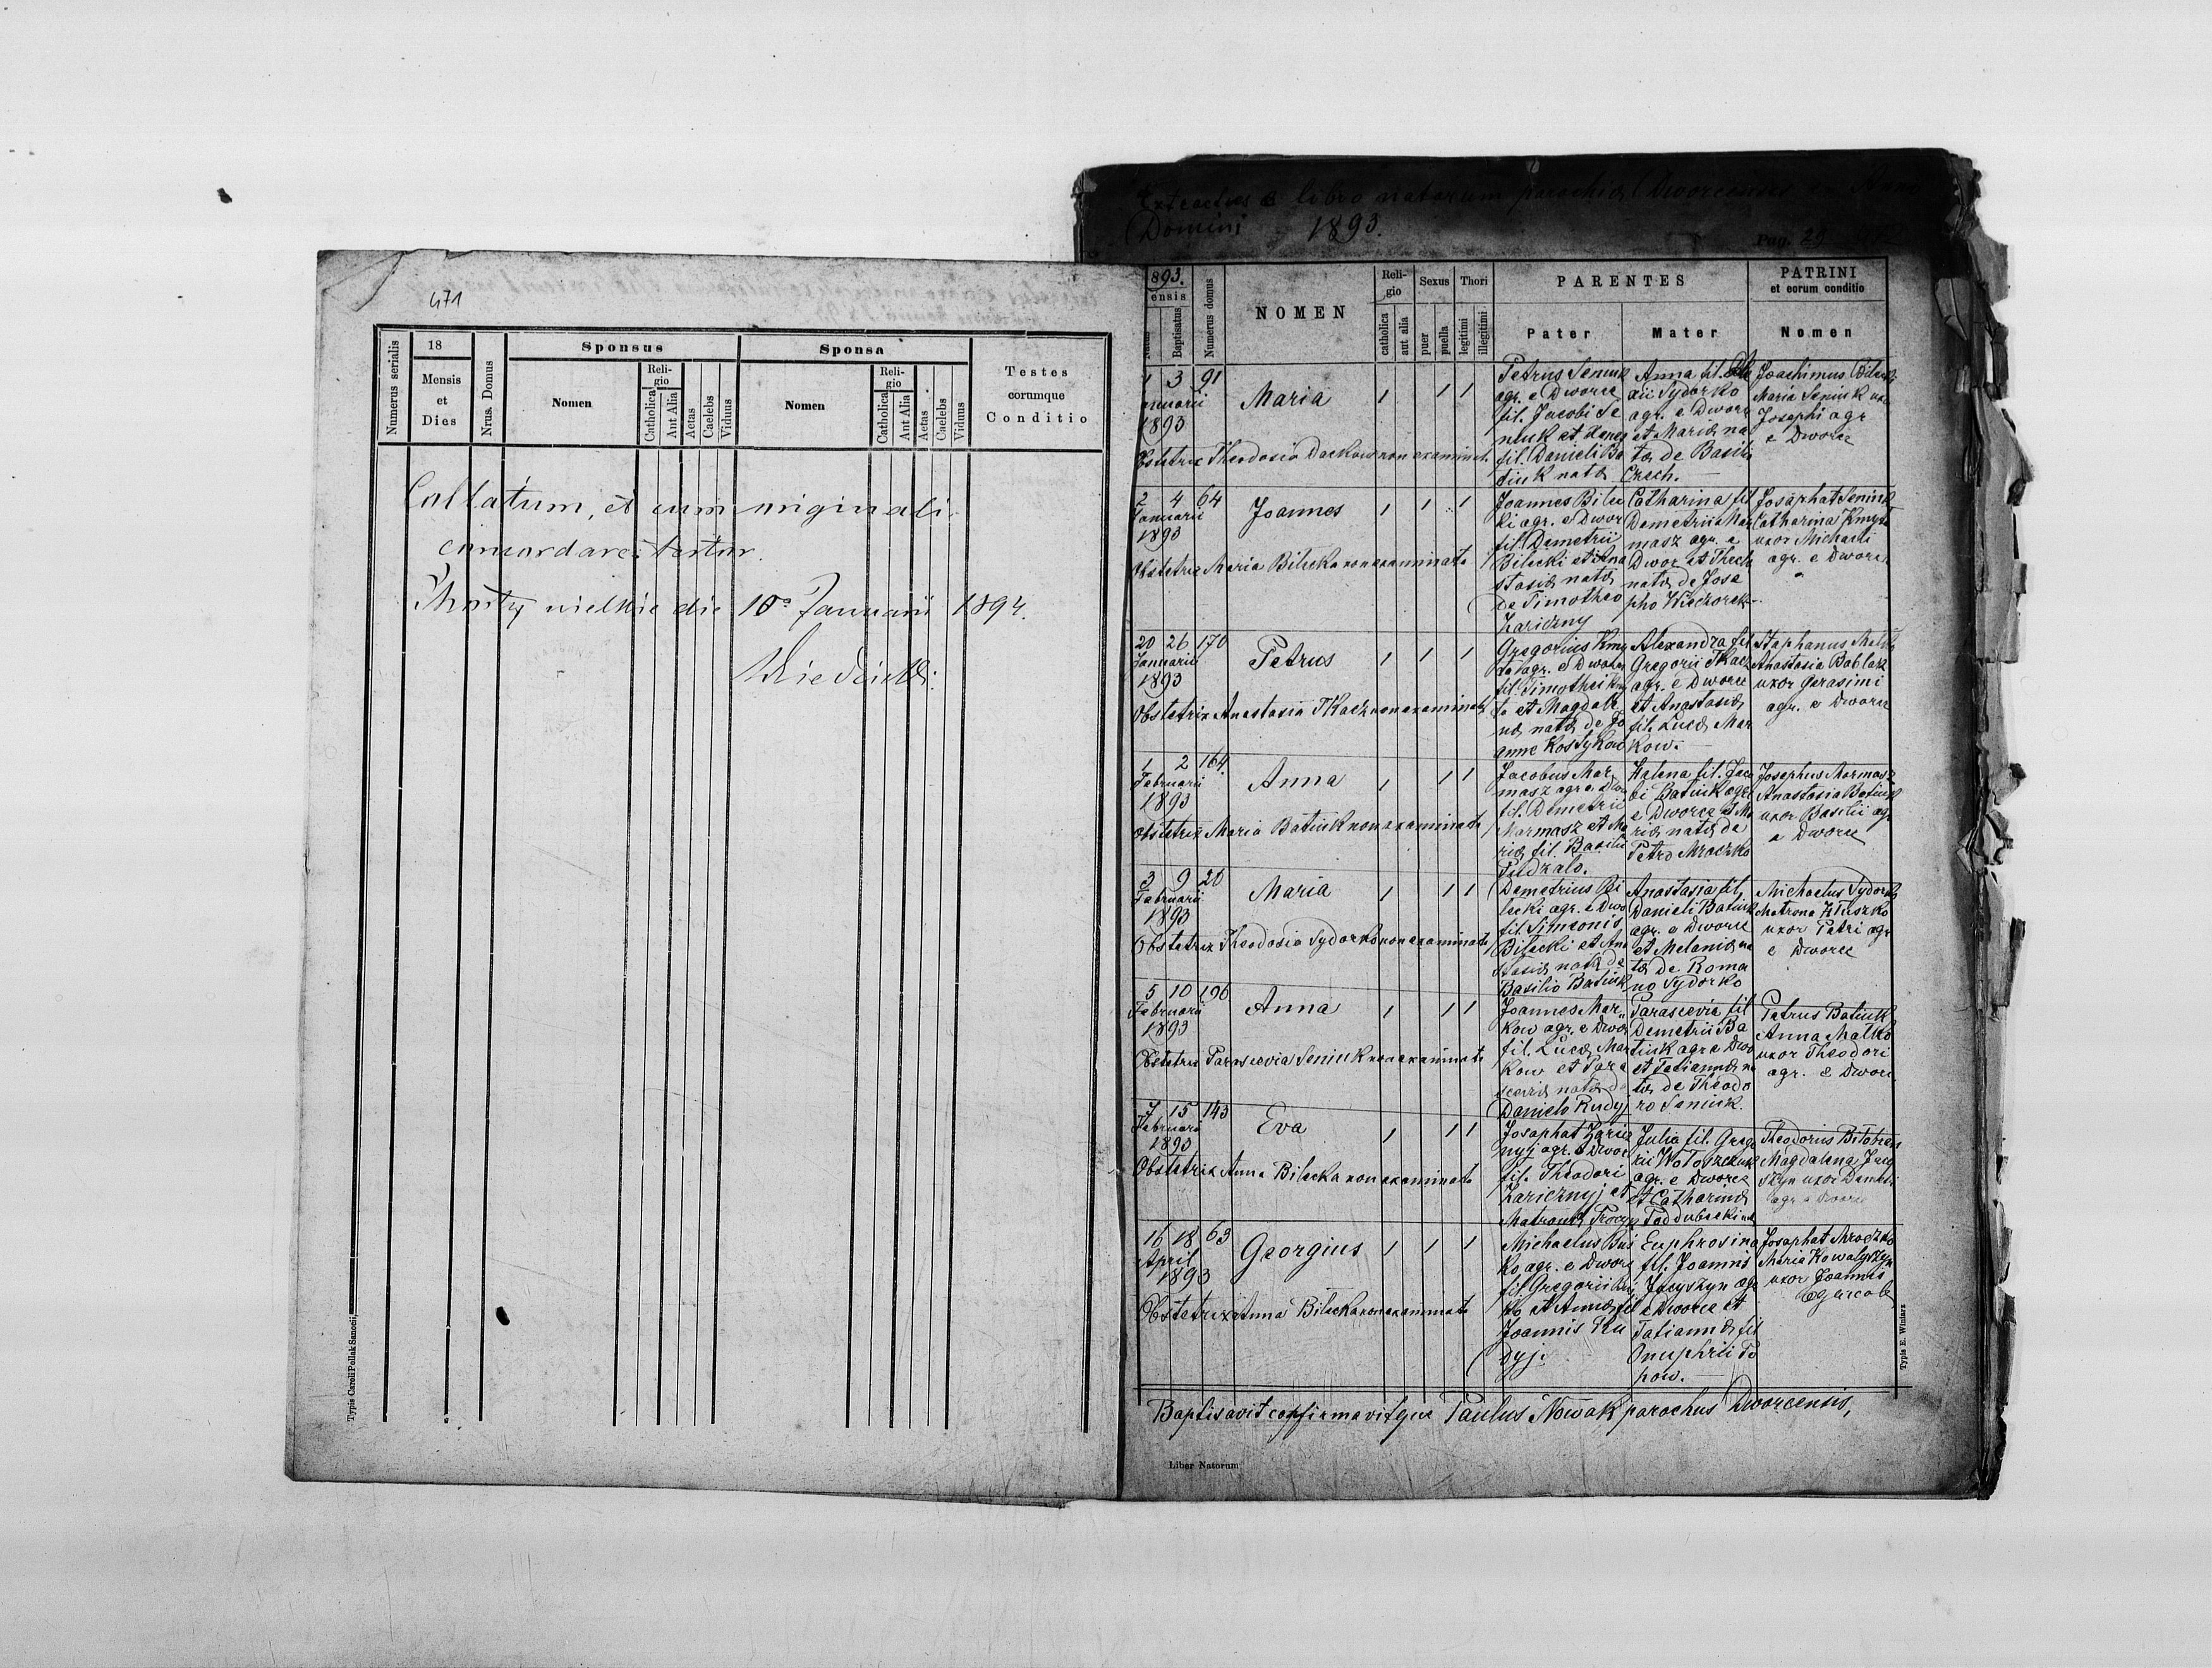 471
Numerus serialis
18
Mensis
et
Dies
Nrus. Domus
Sponsus
Nomen
Reli-
gio
Catholica
Aut Alia
Aetas
Caelebs
Viduus
Sponsa
Nomen
Reli-
gio
Catholica
Aut Alia
Aetas
Caelebs
Viduus
Testes
eorumque
Conditio
Collatum, et cum originali
concordare testor.
wielkie die 10a Januarii 1894.
Typis Caroli Pollak Sanocii
Extractus e libro natorum parochiæ Dworcensis Anno
Domini 1893.
Pag. 29
893.
ensis
Baptisatus
Numerus domus
NOMEN
Reli-
gio
catholica
aut alia
Sexus
puer
puella
Thori
legitimi
illegitimi
PARENTES
Pater
Mater
PATRINI
et eorum conditio
Nomen
1 3 91
anuarii
1893
Maria
Petrus Seniuk
agr. e Dworce
fil. Jacobi Se
niuk et
fil. Danieli Ba
tiuk natæ
Anna fil.
xii Sydorko
agr. e Dworce
et Mariæ na
tæ de Basili
Czech.
Joachimus
Maria Seniuk uxor
Josephi agr
e Dworce
Obstetrix Theodosia non examinata
2 4 64
Januarii
1893
Joannes
Joannes Bilec
ki agr. e Dwor
fil. Demetrii
Bilecki et Ana
stasiæ natæ
de Timotheo
Zariczny
Catharina fil
Demetrii Mar
masz agr. e
Dwor et Thecla
natæ de Jose
pho Wieczorek
Josaphat Seniuk
Catharina Kmyta
uxor Michaeli
agr. e Dworce
Obstetrix Maria Bilecka non examinata
20 26 170
Januarii
1893
Petrus
Gregorius Kmy
ta agr. e Dworce
fil. Timothei Kmy
ta et Magdale
næ natæ de Jo
anne Kostykow
Alexandra fil
Gregorii Tkacz
agr. e Dworce
et Anastasiæ
fil. Lucæ Mar
kow.
Stephanus
Anastasia
uxor Gerasimi
agr. e Dworce
Obstetrix Anastasia Tkacz non examinata
1 2 164.
Februarii
1893
Anna
Jacobus Mar
masz agr e Dwo
fil. Demetrii
Marmasz et Ma
riæ fil. Basilii
Pudzalo.
Helena fil. Jaco
bi Batiuk agr.
e Dworce et Ma
riæ natæ de
Petro Mroczko
Josephus Marmasz
Anastasia Batiuk
uxor Basilii agr
e Dworce
Obstetrix Maria Batiuk non examinata
3 9 20
Februarii
1893
Maria
Demetrius Bi
lecki agr. e Dwo
fil. Simeonis
Bilecki et Ana
stasiæ natæ de
Basilio Batiuk
Anastasia fil,
Danieli Batiuk
agr. e Dworce
et Melaniæ na
tæ de Roma
no Sydorko
Michaelus Sydorko
Matrona
uxor Petri agr
e Dworce
Obstetrix Theodosia Sydorko non examinata
5 10 196
Februarii
1893
Anna
Joannes Mar
kow agr. e Dwo
fil. Lucæ Mar
kow et Para
sceviæ natæ de
Danielo Rudyj
Parascevia fil
Demetrii Ba
tiuk agr e Dwo
et Tatiannæ na
tæ de Theodo
ro Seniuk.
Petrus Batiuk
Anna Malko
uxor Theodori
agr. e Dworce
Obstetrix Parascevia Seniuk non examinata
7 15 143
Februarii
1893
Eva
Josaphat Zaricz
nyj agr. e Dwor
fil. Theodori
Zaricznyj et
Matronæ
Julia fil. Grego
rii Wołoszczuk
agr. e Dworce
et Catharinæ
Poddubecki
Theodorius
Magdalena
uxor
agr e Dworce
Obstetrix Anna Bilecka non examinata
16 18 63
April
1893
Georgius
Michaelus Bus
ko agr. e Dworc
fil. Gregorii Bus
ko et Annæ fil
Joannis Ru
dyj.
Euphrosina
fil. Joannis
Jacyszyn agr
e Dworce et
Tatiannæ fil
Onuphrii Po
pow.
Josaphat Mroczko
Maria Kowalyszyn
uxor Joannis
agricola
Obstetrix Anna Bilecka non examinata
Baptisavit confirmavitque Paulus Nowak parochus Dworcensis,
Liber Natorum
Typis E. Winiarz